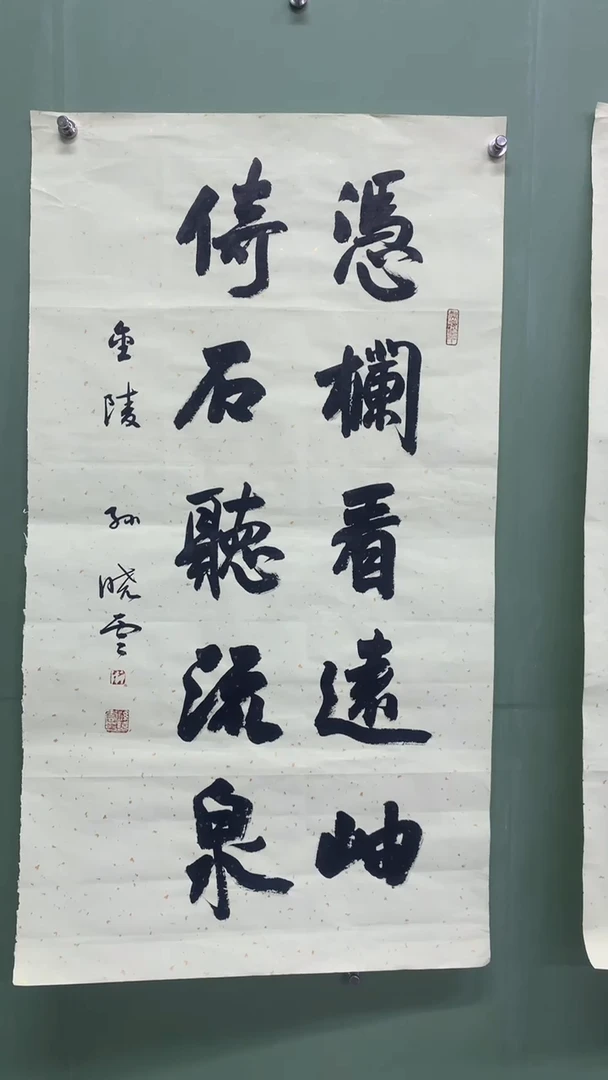 憑欄看遠岫
倚石聽流泉
金陵 孙晓雲